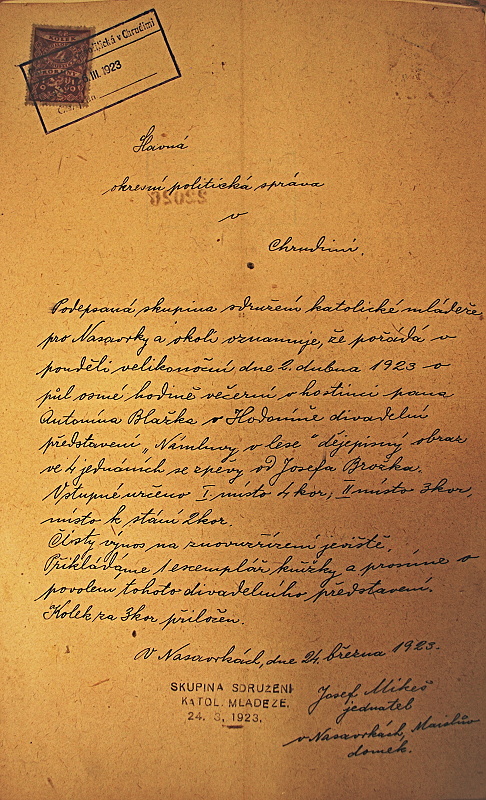 KOLEK
politická v Chrudimi
III. 1923
Slavná
okresní politická správa
22026
v
Chrudimi.
Podepsaná skupina sdružení katolické mládeže
pro Nasavrky a okolí oznamuje, že pořádá v
pondělí velikonoční dne 2. dubna 1923 o
půl osmé hodině večerní v hostinci pana
Antonína Blažka v Hodoníně divadelní
představení „Námluvy v lese" dějepisný obraz
ve 4 jednáních se zpěvy od Josefa Brožka.
Vstupné určeno I. místo 4 kor, II místo 3 kor,
místo k stání 2 kor.
Čistý výnos na znovuzřízení jeviště.
Přikládáme 1 exemplář knížky a prosíme o
povolení tohoto divadelního představení.
Kolek za 3 kor přiložen.
V Nasavrkách, dne 24. března 1923.
SKUPINA SDRUŽENÍ
KATOL. MLÁDEŽE.
24. 3. 1923.
Josef Mikeš
jednatel
v Nasavrkách,
domek.